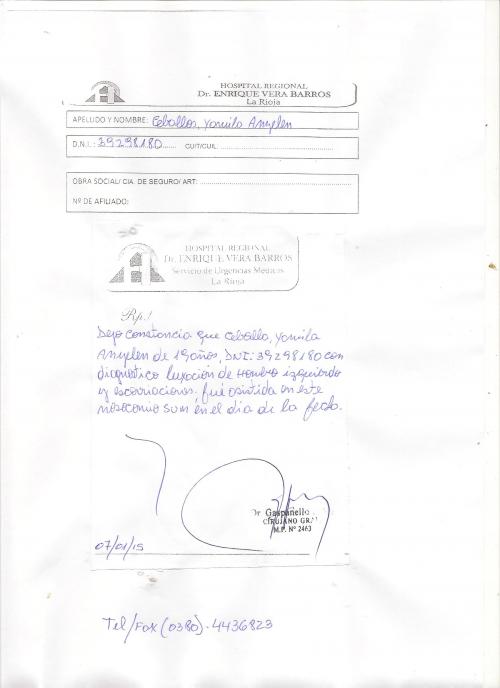 HOSPITAL REGIONAL
Dr. ENRIQUE VERA BARROS
La Rioja
APELLIDO Y NOMBRE: Ceballos, Yamila Anylen
D.N.I.: 39298180 CUIT/CUIL:
OBRA SOCIAL/ CIA. DE SEGURO/ ART:
Nº DE AFILIADO:
HOSPITAL REGIONAL
Dr. ENRIQUE VERA BARROS
Servicio de Urgencias Médicas
La Rioja
Rp./
Dejo constancia que Ceballo, Yamila
Anylen de 19 años, DNI: 39298180 con
diagnóstico luxación de Hombro izquierdo
y escoriaciones. fué asistida en este
nosocomio en el dia de la fecha.
Dr Gaspanello
CIRUJANO GRAL
M.P. Nº 2463
07/01/15
Tel/Fax (0380). 4436823